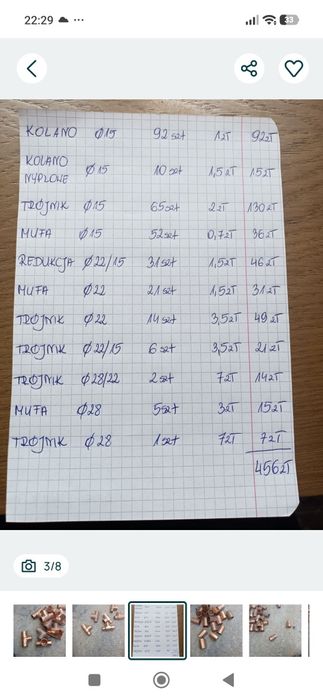 22:29
33
KOLANO Ø15 92szt 1zł 92zł
KOLANO
NYPLOWE Ø15 10szt 1,5zł 15zł
TRÓJNIK Ø15 65szt 2zł 130zł
MUFA Ø15 52szt 0,7zł 36zł
REDUKCJA Ø22/15 31szt 1,5zł 46zł
MUFA Ø22 21szt 1,5zł 31zł
TRÓJNIK Ø22 14szt 3,5zł 49zł
TRÓJNIK Ø22/15 6szt 3,5zł 21zł
TRÓJNIK Ø28/22 2szt 7zł 14zł
MUFA Ø28 5szt 3zł 15zł
TRÓJNIK Ø28 1szt 7zł 7zł
456zł
3/8